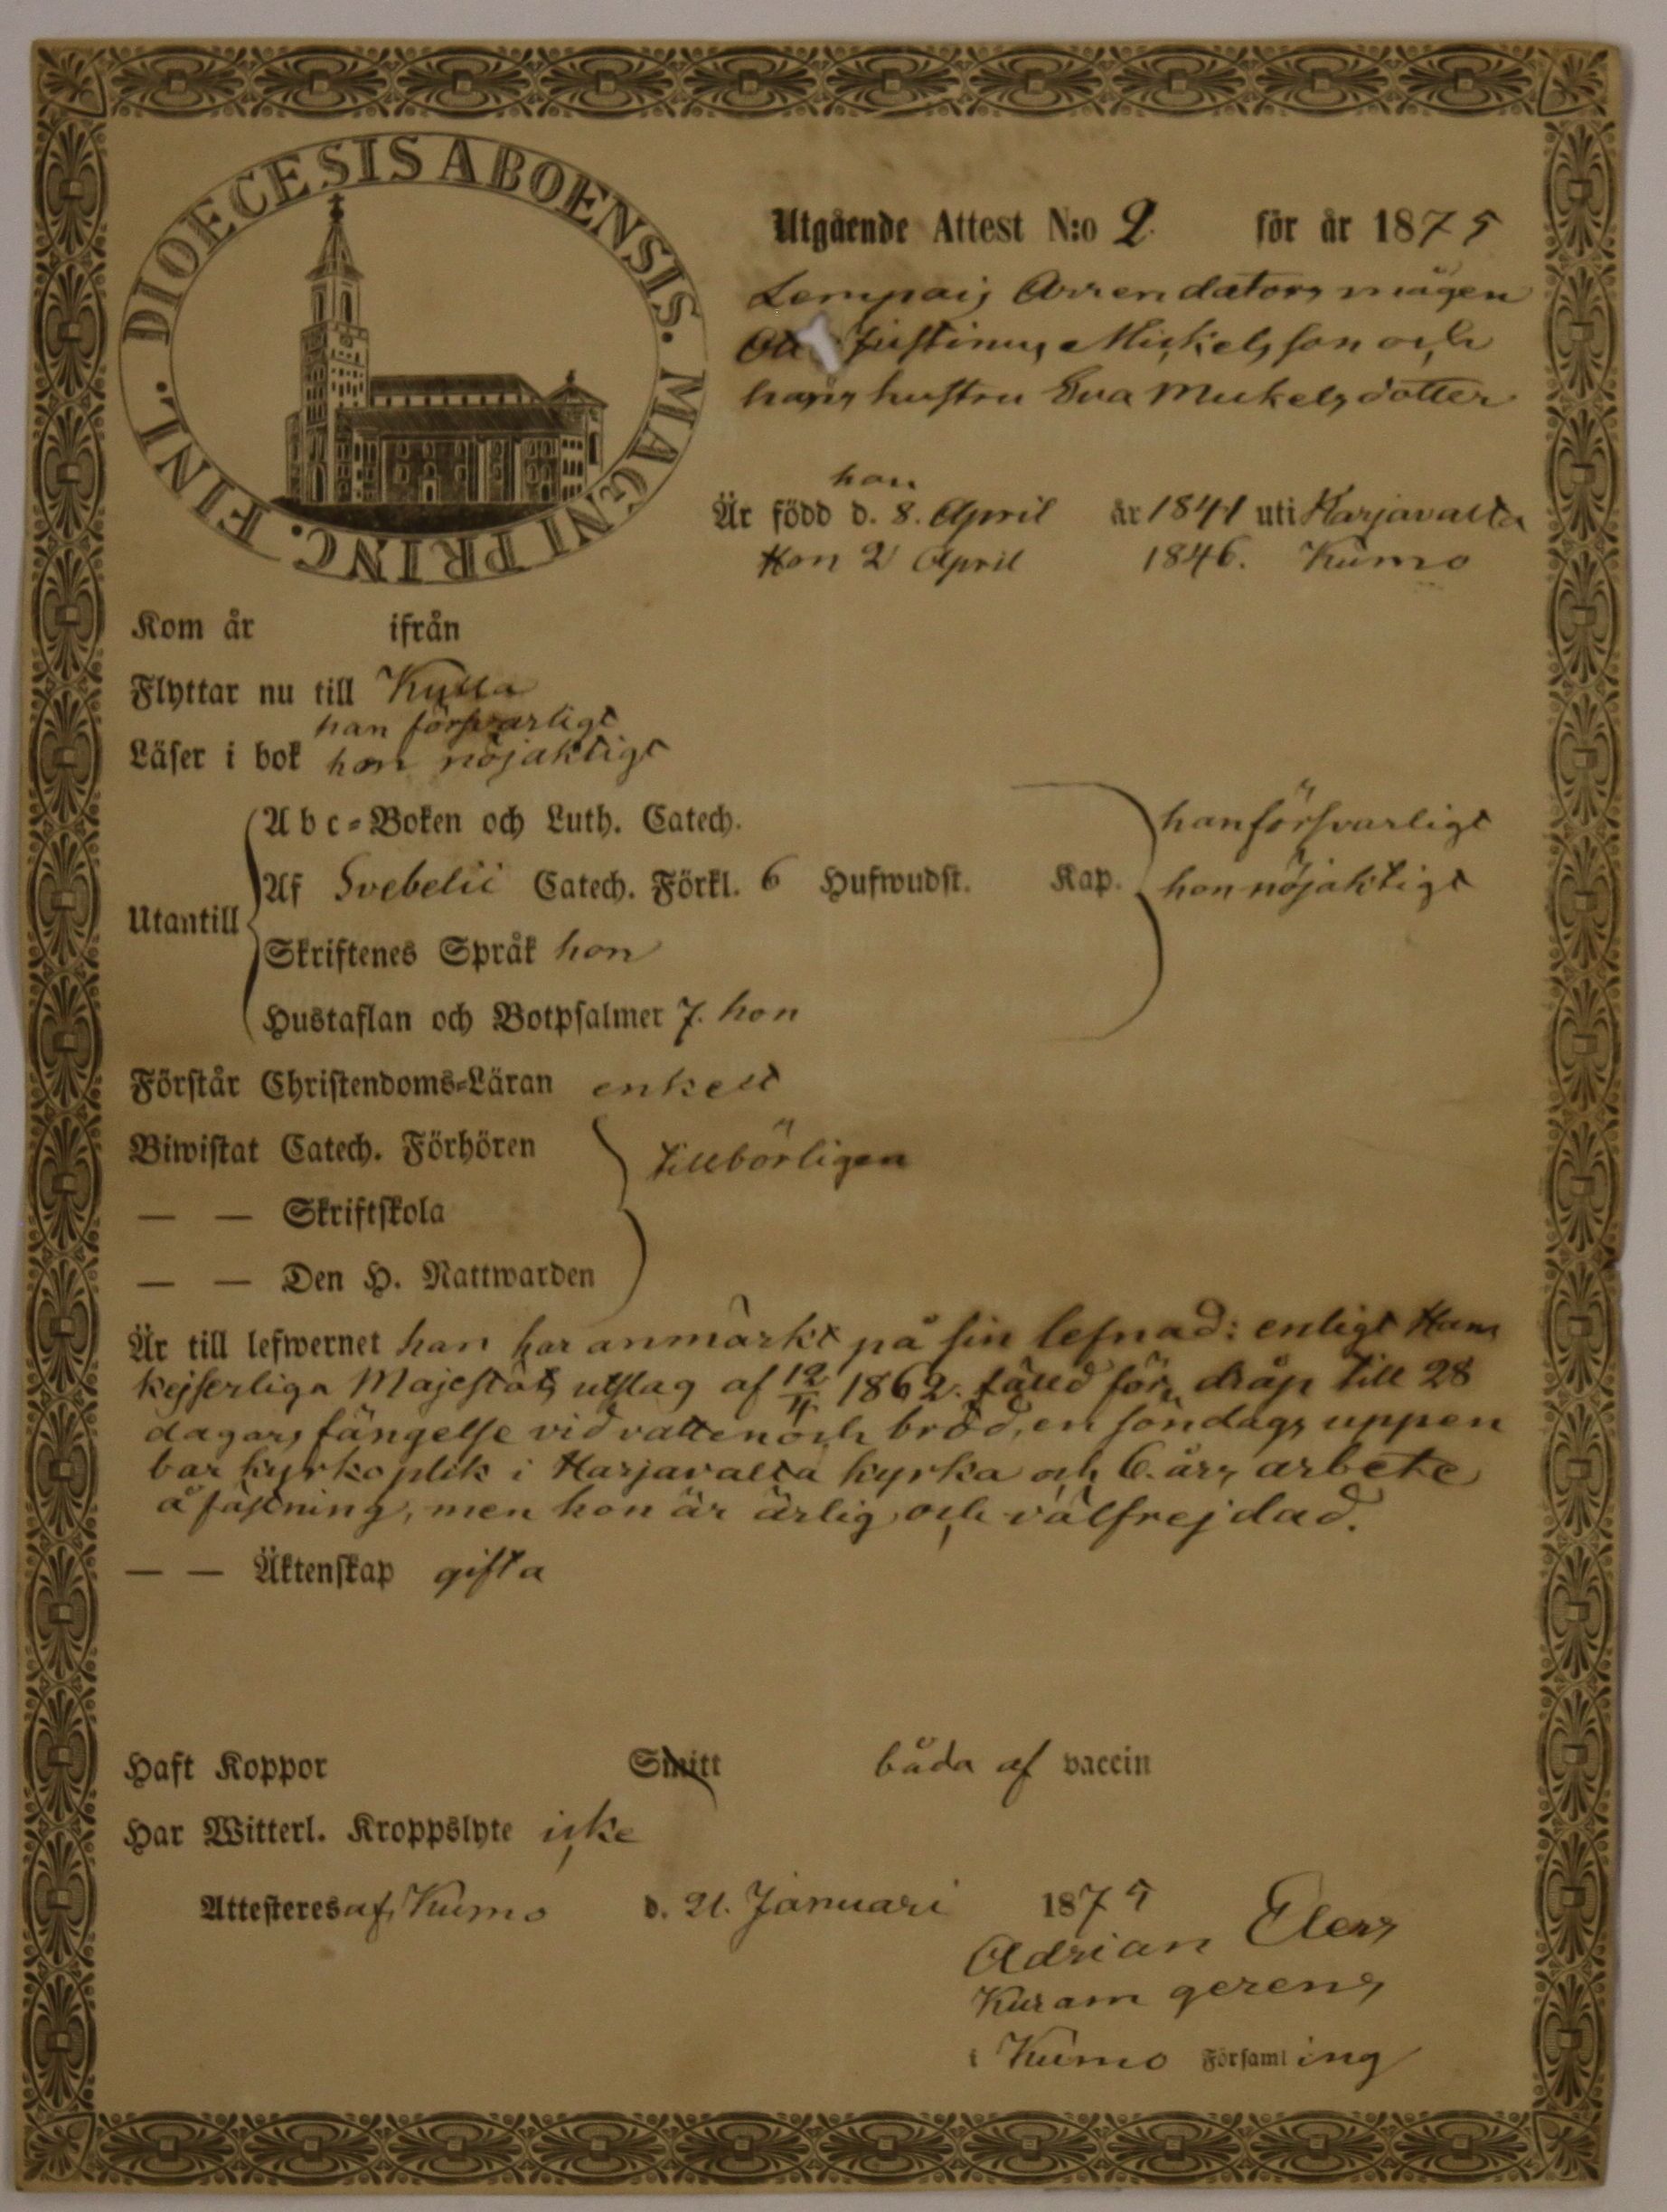 DIOECESIS ABOENSIS. MAGNI PRINC. FINL.
Utgående Attest N:o 2. för år 1875
Lempais Arrendators mågen
Justinus Mickelsson och
hans hustru Eva Mickelsdotter
han
Är född d. 8. April år 1841 uti Harjavalta
Hon 2 April 1846. Kumo
Kom år ifrån
Flyttar nu till Kulla
han försvarligt
Läser i bok hon nöjaktigt
Utantill
Abc-Boken och Luth. Catech. han försvarligt
Af Svebelii Catech. Förkl. 6 Hufwudst. Kap. hon nöjaktigt
Skriftenes Språk hon
Hustaflan och Botpsalmer 7. hon
Förstår Christendoms-Läran enkelt
Biwistat Catech. Förhören tillbörligen
— — Skriftskola
— — Den H. Nattwarden
Är till lefwernet han har anmärkt på sin lefnad: enligt Hans
kejserliga Majestäts utslag af 12/4 1862. fälld för dråp till 28
dagars fängelse vid vatten och bröd, en söndags uppen
bar kyrkoplik i Harjavalta kyrka och 6. års arbete
å fästning, men hon är ärlig och välfrejdad.
— — Äktenskap gifta
Haft Koppor Smitt båda af vaccin
Har Witterl. Kroppslyte icke
Attesteres af, Kumo d. 21. Januari 1875
Adrian Elers
Kuram gerens
i Kumo Församling